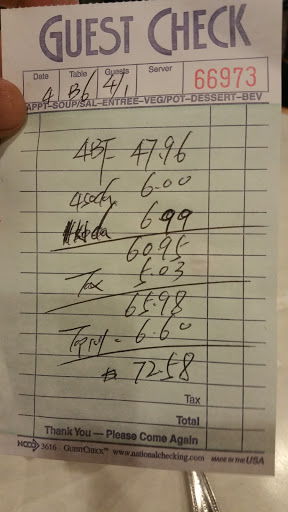 GUEST CHECK
Date Table Guests Server
4 B6 4/1 66973
APPT-SOUP/SAL-ENTREE-VEG/POT-DESSERT-BEV
4BF 47.96
4soda 6.00
6.99
60.95
Tax 5.03
65.98
6.60
72.58
Tax
Total
Thank You — Please Come Again
3616 GUESTCHECK™ www.nationalchecking.com MADE IN THE USA